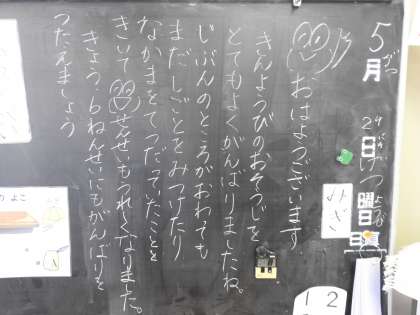 5月29日曜日
がつ
にち
よう
おはようございます
きんようびのおそうじを
とてもよくがんばりましたね。
じぶんのところがおわっても
まだしごとをみつけたり
なかまをてつだっていたことを
きいてせんせいもうれしくなりました。
きょう、6ねんせいにもがんばりを
つたえましょう
1 2